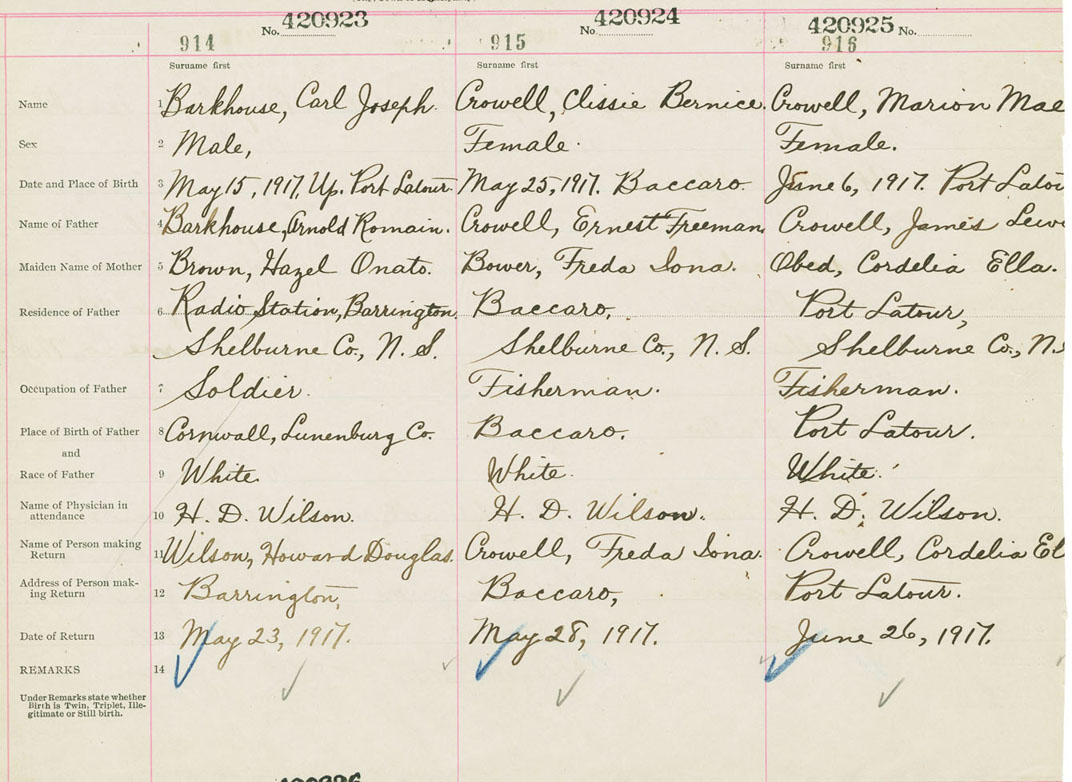 No. 420923 No. 420924 420925 No.
914 915 916
Surname first Surname first Surname first
Name 1 Barkhouse, Carl Joseph. Crowell, Clissie Bernice. Crowell, Marion Mae
Sex 2 Male, Female. Female.
Date and Place of Birth 3 May 15, 1917, Up. Port Latour. May 25, 1917. Baccaro. June 6, 1917. Port Latou
Name of Father 4 Barkhouse, Arnold Romain. Crowell, Ernest Freeman. Crowell, James Lewi
Maiden Name of Mother 5 Brown, Hazel Onato. Bower, Freda Iona. Obed, Cordelia Ella.
Residence of Father 6 Radio Station, Barrington. Baccaro, Port Latour,
Shelburne Co., N. S. Shelburne Co., N. S. Shelburne Co., N.S
Occupation of Father 7 Soldier. Fisherman. Fisherman.
Place of Birth of Father 8 Cornwall, Lunenburg Co. Baccaro. Port Latour.
and
Race of Father 9 White. White. White.
Name of Physician in
attendance 10 H. D. Wilson. H. D. Wilson. H. D. Wilson.
Name of Person making
Return 11 Wilson, Howard Douglas. Crowell, Freda Iona. Crowell, Cordelia El
Address of Person mak-
ing Return 12 Barrington, Baccaro, Port Latour.
Date of Return 13 May 23, 1917. May 28, 1917. June 26, 1917.
REMARKS 14
Under Remarks state whether
Birth is Twin, Triplet, Ille-
gitimate or Still birth.